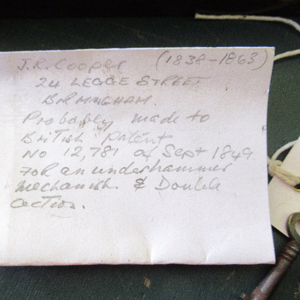 J.R. Cooper (1838-1863)
24 LEGGE STREET
BIRMINGHAM.
Probably made to
British Patent
No 12,781 of Sept 1849
FOR an underhammer
Mechanism. & Double
action.